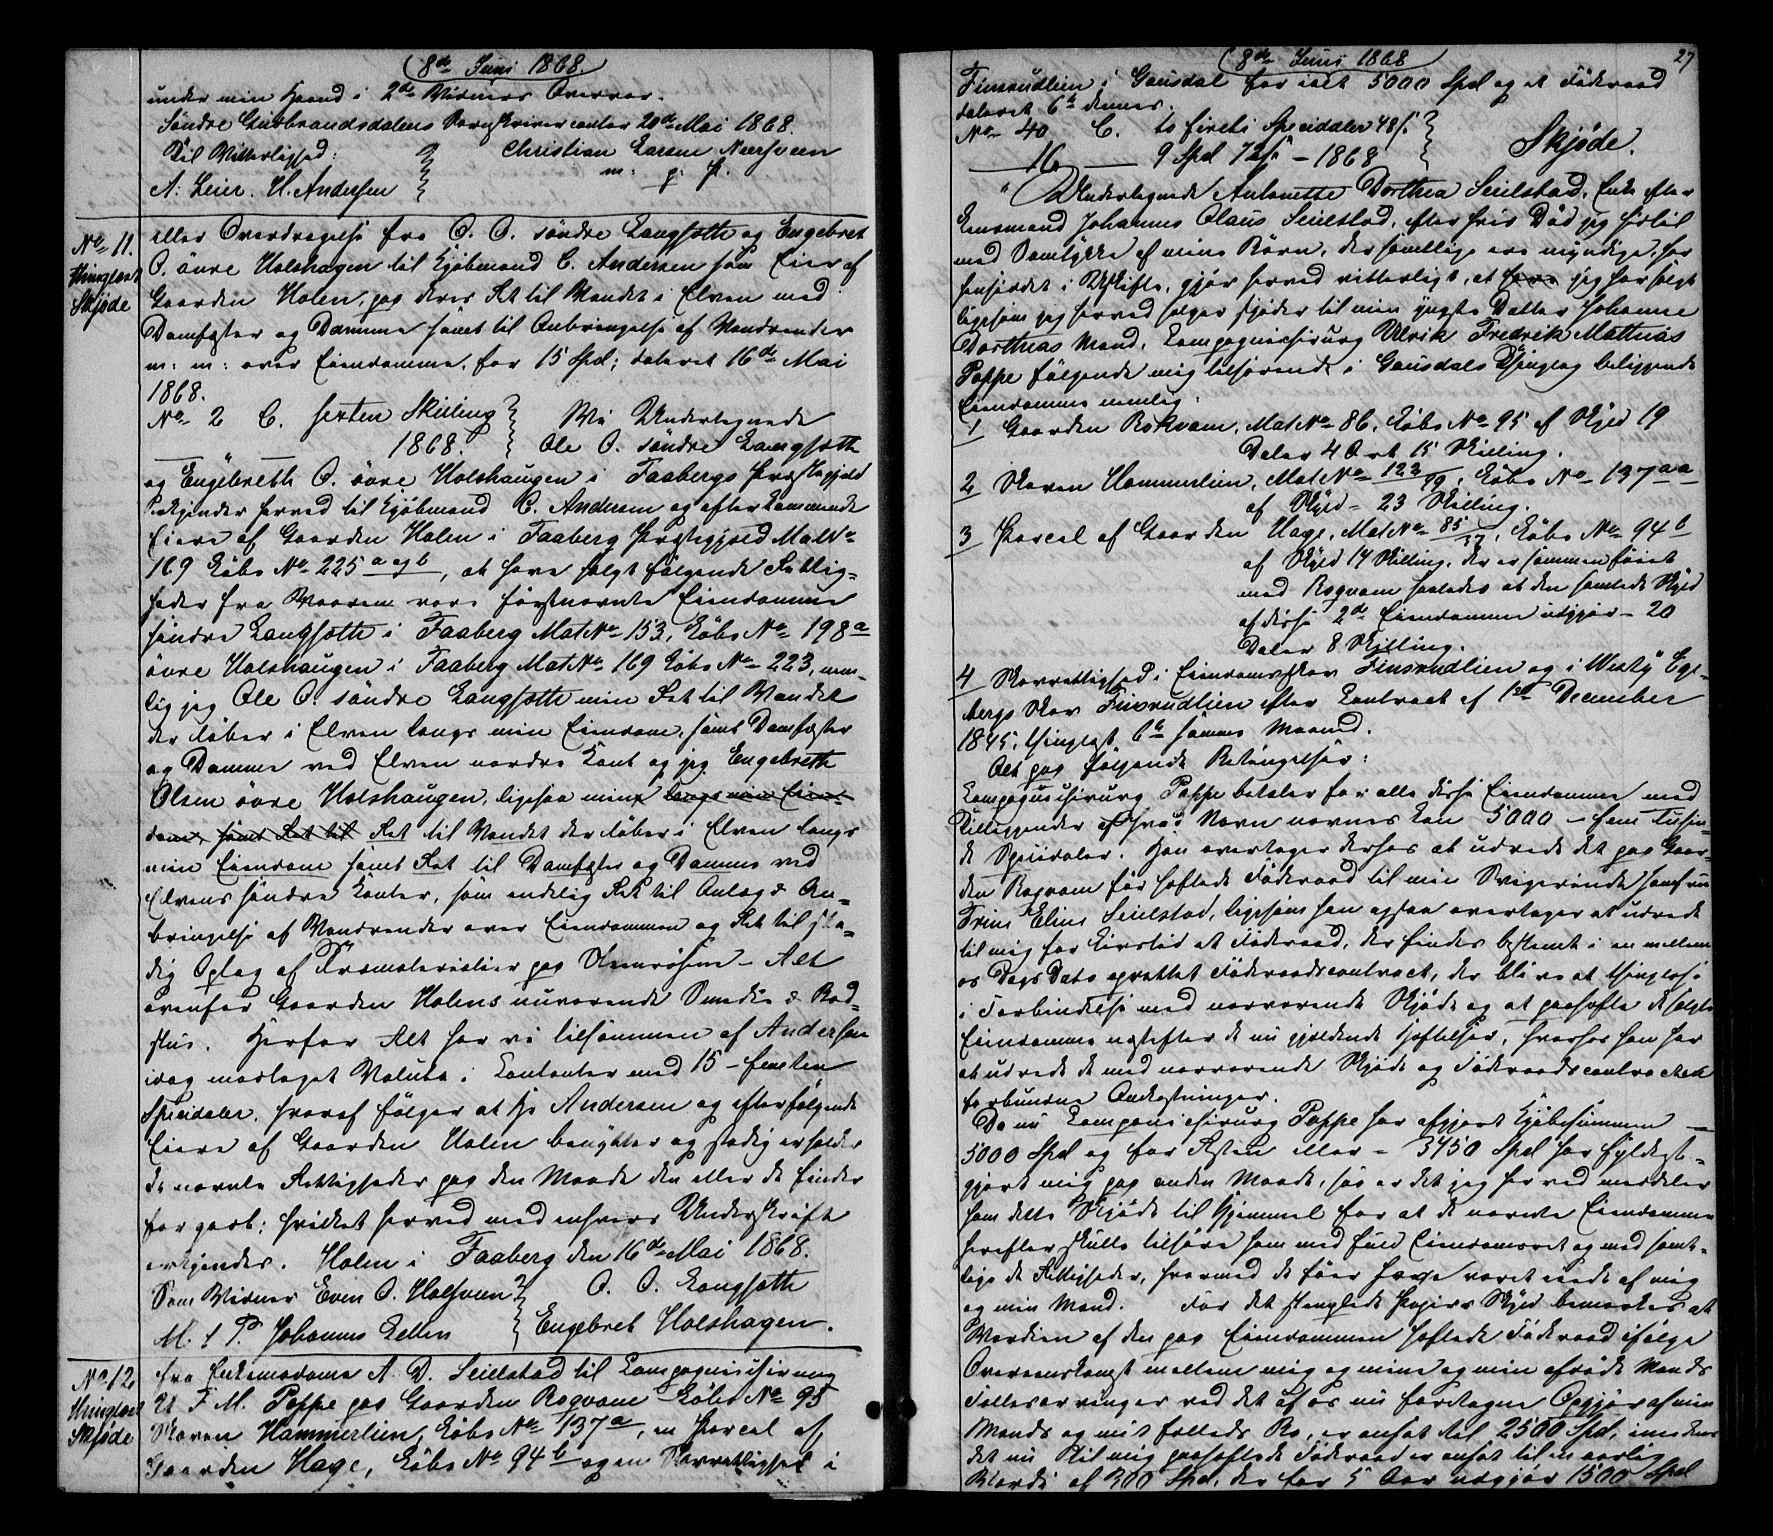 8de Juni 1868.
under min Haand i 2de Vidners Overvær.
Søndre Gudbrandsdalens Sorenskrivercontor 20de Mai 1868.
Til Vitterlighed: Christian Larsen Næersveen
A: Leier. H. Andersen m: p: P.
No 11. Thinglæst Skjøde
eller Overdragelse fra O. O. söndre Langsœth og Engebret
O. övre Holshagen til Kjøbmand C. Andersen som Eier af
Gaarden Holen, paa deres Ret til Vandet i Elven med
Damfæster og Damme samt til Anbringelse af Vandrender
m: m: over Eiendomme, for 15 Spd; dateret 16de Mai
1868.
No 2 C. sexten Skilling Vi Undertegnede
1868. Ole O. söndre Langsœth
og Engebreth O. övre Holshaugen i Faabergs Præstegjeld
tilkjender herved til Kjøbmand C. Andersen og efterkommende
Eiere af Gaarden Holen i Faaberg Præstegjæld Mat No
169 Löbe No 225 a og b, at have solgt følgende Rettig-
heder fra Vaaren vore førstnævnte Eiendomme
søndre Langsœth i Faaberg Mat No 153, Löbe No 198 a
övre Holshaugen i Faaberg Mat No 169 Löbe No 223, nem-
lig jeg Ole O. söndre Langsœth min Ret til Vandet
der løber i Elven langs min Eiendom, samt Damfæster
og Damme ved Elven nordre Kant og jeg Engebreth
Olsen övre Holshaugen, ligesaa min langs min Eien-
dom, samt Ret til Ret til Vandet der løber i Elven langs
min Eiendom samt Ret til Damfæste og Damme ved
Elvens søndre Kanter, som endelig Ret til Anlæg & An-
bringelse af Vandrender over Eiendommen og Ret til sta-
dig Oplag af Træmaterialier paa - Alt
ovenfor Gaarden Holens nuværende Smedie & Bad-
stue. Herfor Alt har vi tilsammen af Andersen
idag modtaget Valuta i Contanter med 15 - femten
Speciedaler, hvoraf følger at Hr Andersen og efterfølgende
Eiere af Gaarden Holen benytter og stadig erholder
de nævnte Rettigheder paa den Maade den eller de finder
for godt; hvilket herved med enhvers Underskrift
erkjendes. Holen i Faaberg den 16de Mai 1868.
Som Vidner Even O. Holsveen O. O. Langsœth
M. f P. Johannes Lellen Engebret Holshagen.
No 12 Thinglæst Skjøde
fra Enkemadame A. D. Seielstad til Compagniechirurg
U F. M. Poppe paa Gaarden Rogvam Löbe No 95
Skoven Hammerlien, Löbe No 137 a, en Parcel af
Gaarden Hage, Löbe No 94 b og en Skovrettighed i
8de Juni 1868
27
Finsrudlien i Gausdal for ialt 5000 Spd og et Föderaad
dateret 6te dennes.
No 40 C. to fireti Speciedaler 48 s.
16 — 9 Spd 72 s — 1868 Skjøde.
Undertegnede Antonette Dorthea Seielstad, Enke efter
Lensmand Johannes Claus Seielstad, efter hvis Död jeg hertil
med Samtykke af mine Børn, der samtlige ere myndige, har
hensiddet i Uskifte, gjør herved vitterligt, at have jeg har solgt
ligesom jeg herved sælger skjøder til min yngste Datter Johanne
Dortheas Mand, Compagniechirurg Ulrik Fredrik Mathias
Poppe følgende mig tilhørende i Gausdals Thinglag beliggende
Eiendomme nemlig:
1 Gaarden Rokvam, Mat No 86, Löbe No 95 af Skyld 19
Daler 4 Ort 15 Skilling.
2 Skoven Hammerlien, Mat No 123/99, Löbe No 137 aa
af Skyld - 23 Skilling.
3 Parcel af Gaarden Hage, Mat No 85/37, Löbe No 94 b
af Skyld 14 Skilling, der er sammenføiet
med Rogvam saaledes at den samlede Skyld
af disse 2de Eiendomme udgjør - 20
Daler 8 Skilling.
4 Skovrettighed i Eiendomsskov Finsrudlien og i Westy Ege-
bergs Skov Finsrudlien efter Contract af 1ste December
1845, thinglæst 6te samme Maaned.
Alt paa følgende Betingelser:
Compagniechirurg Poppe betaler for alle disse Eiendomme med
Tilliggender af hvad Navn nævnes kan 5000 - fem tusin-
de Speciedaler. Han overtager derhos at udrede det paa Gaar-
den Rogvam før heftede Föderaad til min Svigerinde Jomfru
Trine Eline Seielstad, ligesom han ogsaa overtager at udrede
til mig for Livstid et Föderaad, der findes bestemt i en mellem
os Dags Dato oprettet Föderaadscontract, der bliver at thinglæse
i Forbindelse med nærværende Skjøde og at paahefte de solgte
Eiendomme næstefter de nu gjeldende Heftelser, hvorhos han har
at udrede de med nærværende Skjøde og Föderaadscontracten
forbundne Omkostninger.
Da nu Compagniechirurg Poppe har afgjort Kjøbesummen —
5000 Spd og for Resten eller - 3450 Spd har fyldest-
gjort mig paa anden Maade, saa er det jeg herved meddeler
ham dette Skjøde til Hjemmel for at de nævnte Eiendomme
herefter skulle tilhøre ham med fuld Eiendomsret og med samt-
lige de Rettigheder, hvormed de hver have været eiede af mig
og min Mand. For det stemplede Papirs Skyld bemærkes at
Værdien af den paa Eiendommen heftede Föderaad ifølge
Overenskomst mellem mig og mine og min afdøde Mands
Fællesarvinger ved det af os nu foretagne Opgjør af min
Mands og mit Fælleds Bo, er ansat til 2500 Spd, imedens
det nu til mig paaheftede Föderaad er ansat til en aarlig
Værdi af 300 Spd, der for 5 Aar udgjør 1500 Spd